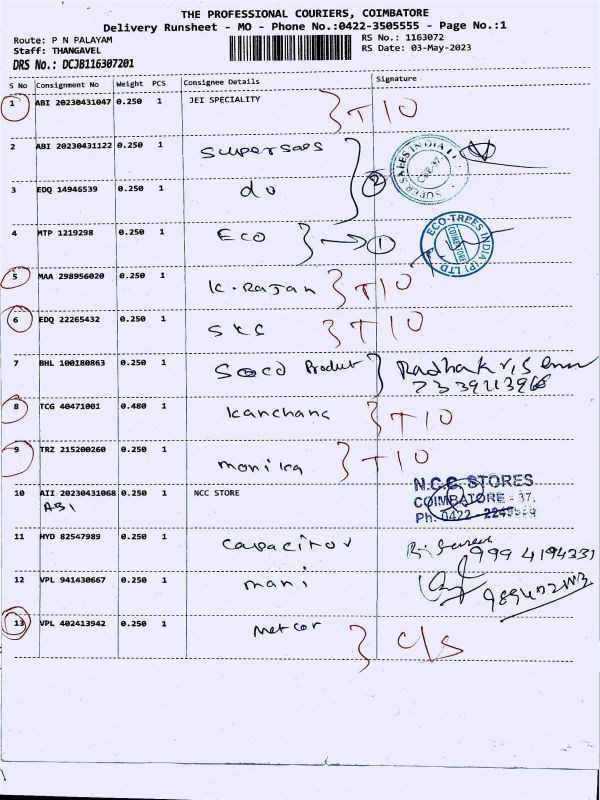 THE PROFESSIONAL COURIERS, COIMBATORE
Delivery Runsheet - MO - Phone No.:0422-3505555 - Page No.:1
Route: P N PALAYAM RS No.: 1163072
Staff: THANGAVEL RS Date: 03-May-2023
DRS No.: DCJB116307201
S No Consignment No Weight PCS Consignee Details Signature
1 ABI 20230431047 0.250 1 JEI SPECIALITY T10
2 ABI 20230431122 0.250 1 SUPER SALES INDIA
3 EDQ 14946539 0.250 1 do 2
4 MTP 1219298 0.250 1 ECO 1 ECO-TREES INDIA (P) LTD COIMBATORE
5 MAA 298956020 0.250 1 K. Rajan T10
6 EDQ 22265432 0.250 1 SKC T10
7 BHL 100180863 0.250 1 Product
8 TCG 40471001 0.480 1 Kanchana T10
9 TRZ 215200260 0.250 1 monika T10
10 AII 20230431068 0.250 1 NCC STORE N.C.C. STORES
ABI COIMBATORE - 37.
Ph: 0422 -
11 HYD 82547989 0.250 1 capacitor
12 VPL 941430667 0.250 1 mani
13 VPL 402413942 0.250 1 metcor C/S